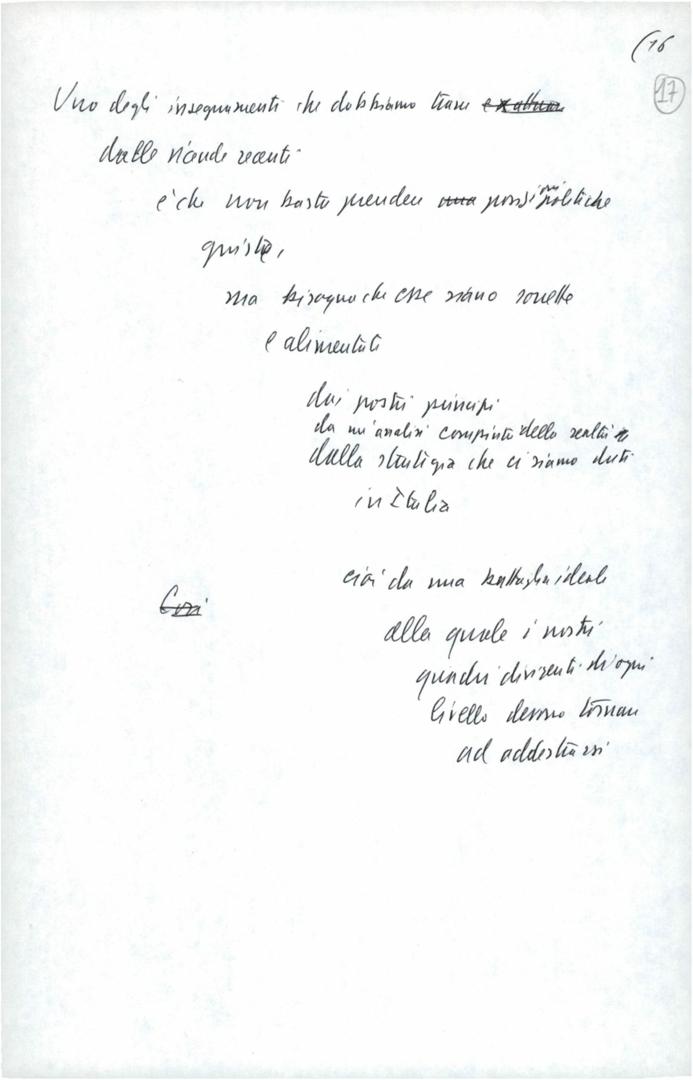 (16
17
Uno degli insegnamenti che dobbiamo trarre
dalle vicende recenti
è che non basta prendere una posizioni politiche
giuste,
ma bisogna che esse siano sorrette
e alimentate
dai nostri principi
da un'analisi compiuta della realtà
dalla strategia che ci siamo dati
in Italia
cioè da una battaglia ideale
Così
alla quale i nostri
quadri dirigenti di ogni
livello devono tornare
ad addestrarsi